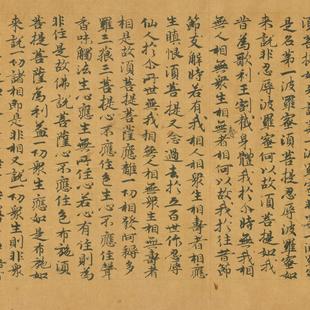 是名第一波羅蜜湏菩提忍辱波羅蜜如
來説非忍辱波羅蜜何以故湏菩提如我
昔為歌利王割截身體我於尒時無我相
無人相無衆生相無壽者相何以故我於往昔節
節支解時若有我相人相衆生相壽者相應
生瞋恨湏菩提又念過去於五百世作忍辱
仙人於尒所世無我相無人相無衆生相無壽者
相是故湏菩提菩薩應離一切相發阿耨多
羅三藐三菩提心不應住色生心不應住聲
香味觸法生心應生無所住心若心有住則為
非住是故佛説菩薩心不應住色布施湏
菩提菩薩為利益一切衆生應如是布施如
來説一切諸相即是非相又説一切衆生則非衆